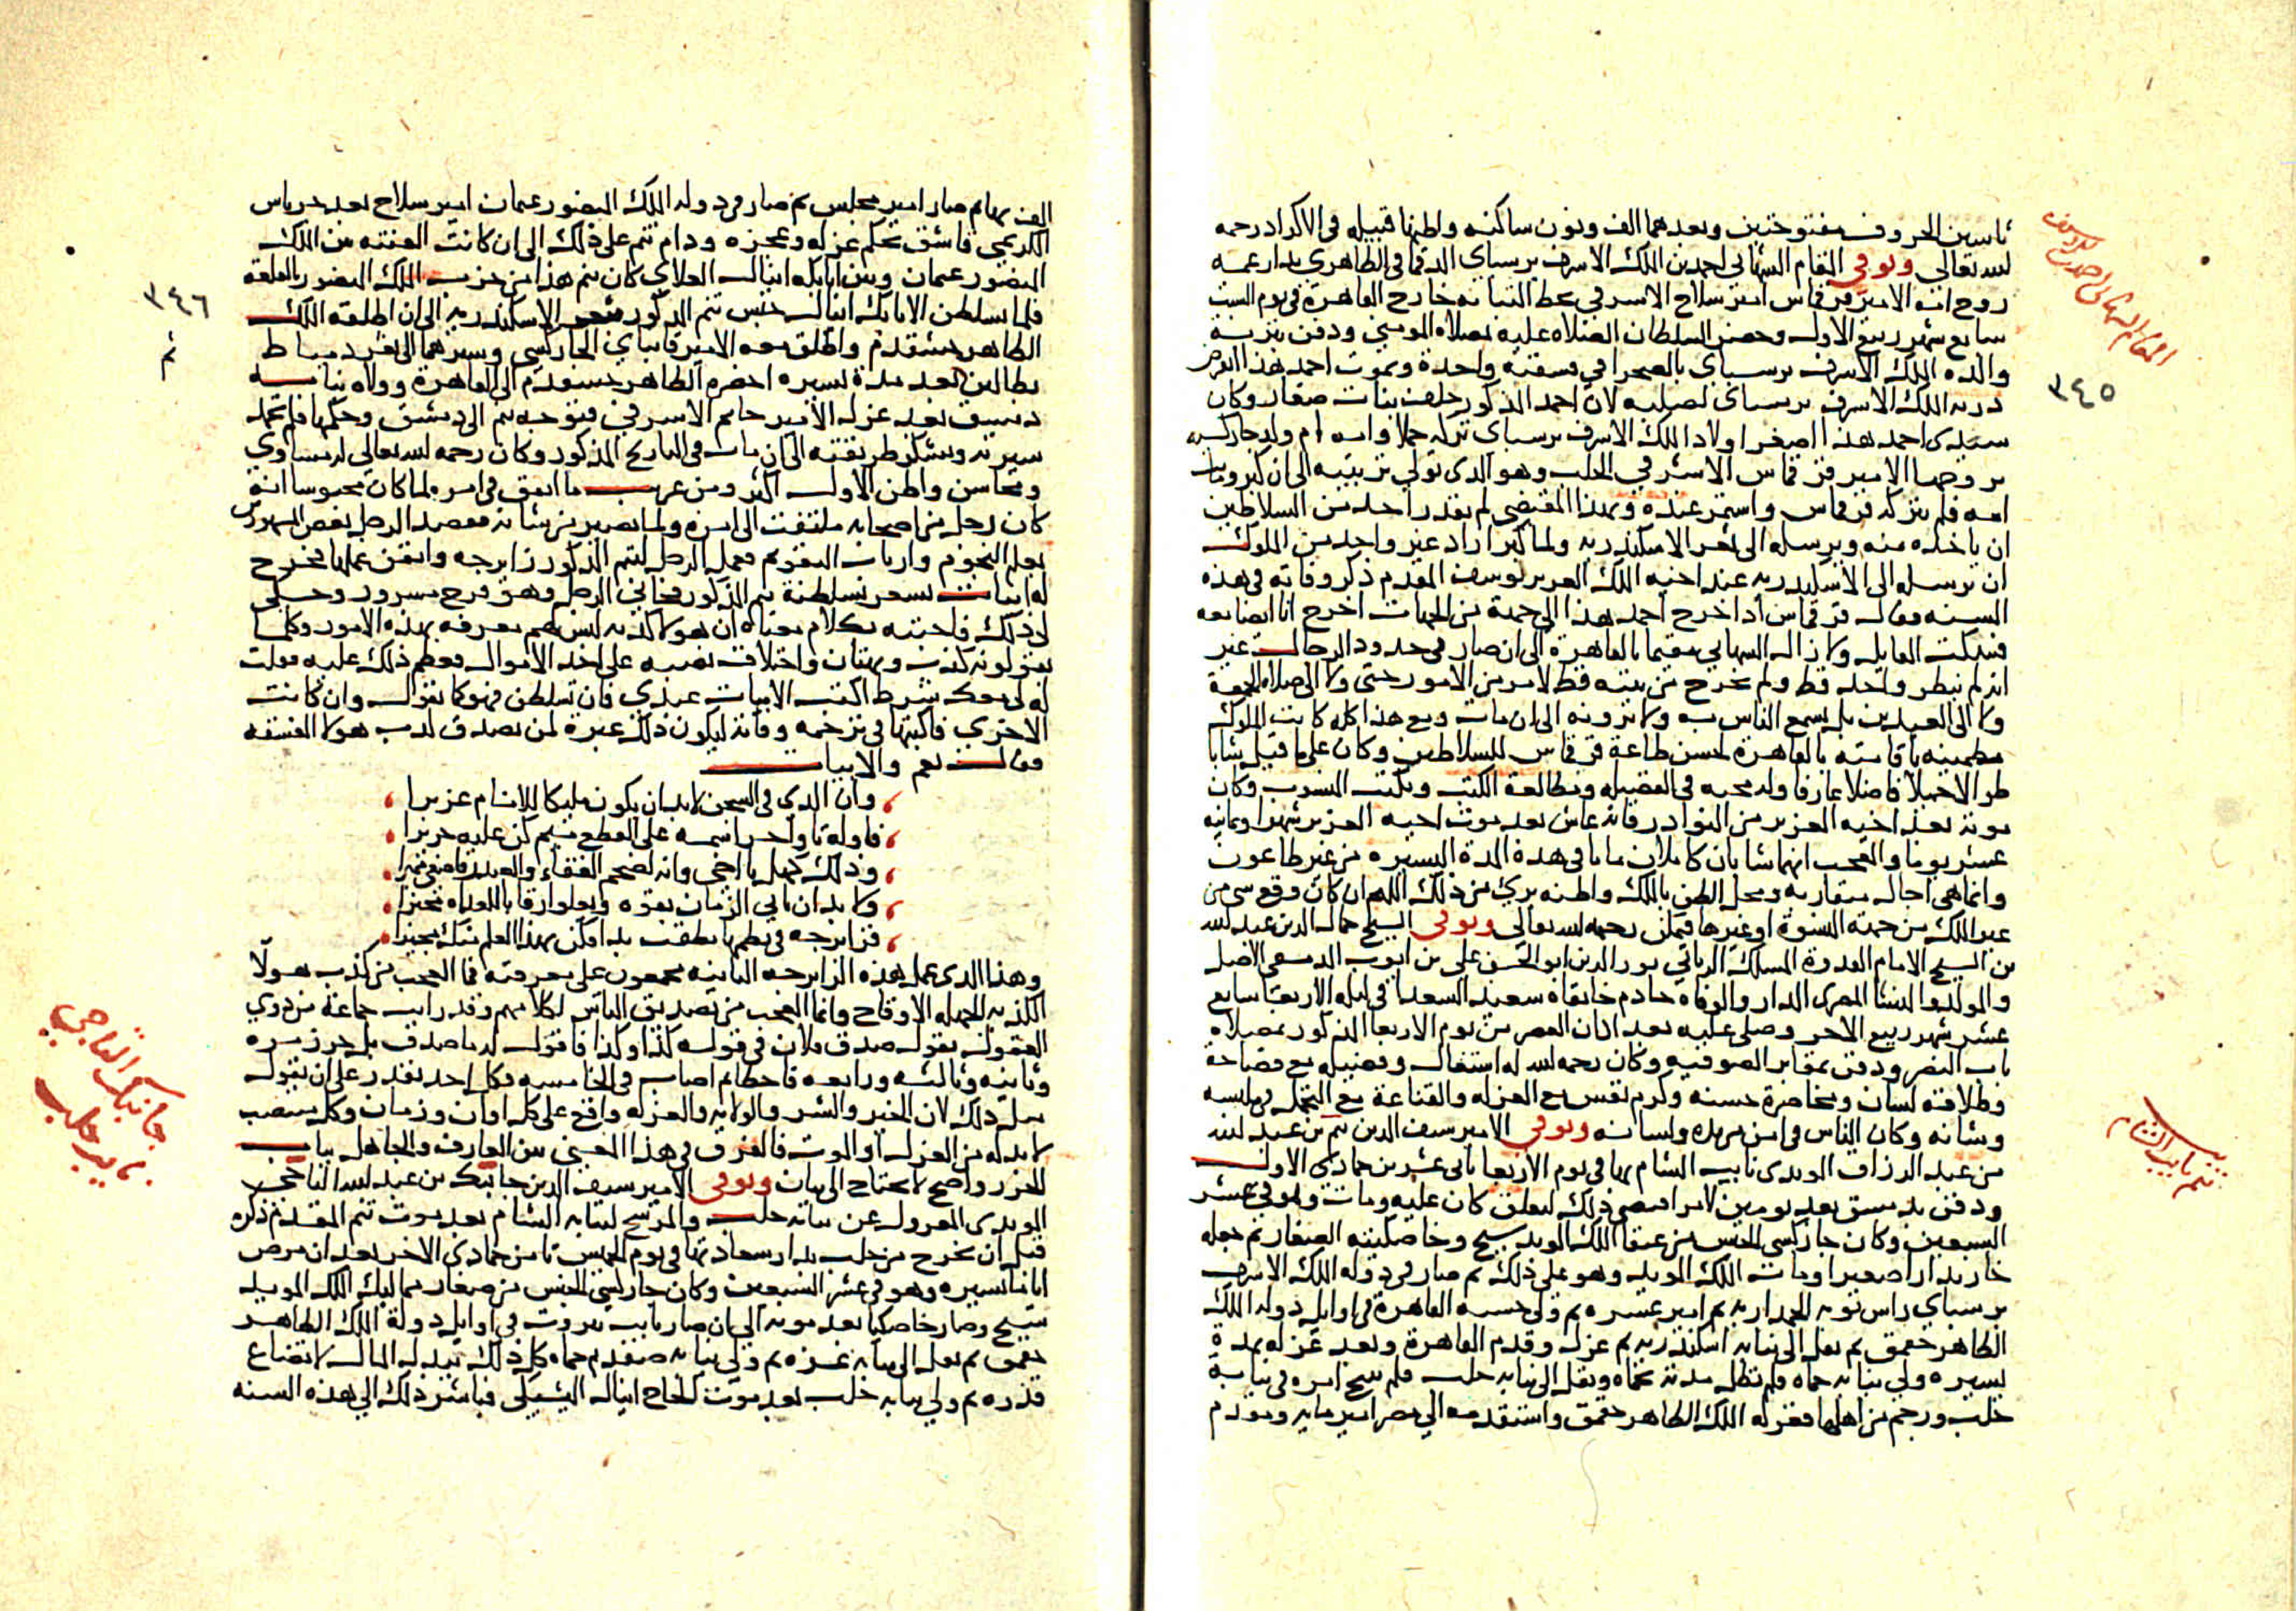 ثاسين الحروف مفتوحتين وبعدهما الف ونون ساكنه واظنها قبيله في الاكراد رحمه
لله تعالى وتوفي المقام الشهابي احمد بن الملك الاشرف برسباي الدقماقي الظاهري بدار عمه
زوج امه الامير قرقماس امير سلاح الاشرفي بخط التبانه خارج القاهرة في يوم السبت
سابع شهر ربيع الاول وحضر السلطان الصلاه عليه بمصلاه المومني ودفن بتربة
والده الملك الاشرف برسباي بالصحرا في فسقية واحدة وبموت احمد هذا انقرض
ذريه الملك الاشرف برسباي لصلبه لان احمد المذكور خلف بنات صغار وكان
سيدي احمد هذا اصغر اولاد الملك الاشرف برسباي تركه حملا وامه ام ولد جاركسيه
تزوجها الامير قرقماس الاشرفي الجلب وهو الذي تولي تربيته الى ان كبر وماتت
امه فلم يتركه قرقماس واستمر عنده وبهذا المقتضى لم يقدر احد من السلاطين
ان ياخذه منه ويرسله الى ثغر الاسكندريه ولما كبر اراد غير واحد من الملوك
ان يرسله الى الاسكندريه عند اخيه الملك العزيز يوسف المقدم ذكر وفاته في هذه
السنه فقال قرقماس اذا اخرج احمد هذا الى جهة من الجهات اخرج انا ايضا معه
فسكت القايل ولا زال الشهابي مقيما بالقاهرة الى ان صار في حدود الرجال غير
انه لم ينظر واحد قط ولم يخرج من بيته قط لامر من الامور حتى ولا الى صلاه الجمعة
ولا الى العيدين بل يسمع الناس به ولا يرونه الى ان مات ومع هذا كله كانت الملوك
مطمينه باقامته بالقاهرة لحسن طاعة قرقماس للسلاطين وكان على ما قيل شابا
طوالا جميلا فاضلا عارفا وله محبه في الفضيله ومطالعة الكتب ويكتب المنسوب وكان
موته بعد اخيه العزيز من النوادر فانه عاش بعد موت اخيه العزيز شهرا وثمانيه
عشر يوما والعجب انهما شابان كاملان ماتا في هذة المدة اليسيره من غير طاعون
وانما هي اجال متقاربه ومحل الظن بالملك واظنه بري من ذلك اللهم ان كان وقع شي من
غير الملك من جهة النسوة او غيرها فيمكن رحمه لله تعالى وتوفي الشيخ جمال الدين عبد لله
بن الشيخ الامام القدوة المسلك الرباني نور الدين ابو الحسن علي بن ايوب الدمشقي الاصل
والمولد والمنشا المصري الدار والوفاه خادم خانقاة سعيد السعدا في ليله الاربعا سابع
عشر شهر ربيع الاخر وصلى عليه بعد اذان العصر من يوم الاربعا المذكور بمصلاه
باب النصر ودفن بمقابر الصوفيه وكان رحمه لله له اشتغال وفضيله مع فصاحة
وطلاقه لسان ومحاضرة حسنه وكرم نفس مع العزله والقناعة مع التجمل في ملبسه
وشانه وكان الناس في امن من يده ولسانه وتوفي الامير سيف الدين تنم بن عبد لله
من عبد الرزاق المويدي نايب الشام بها في يوم الاربعا ثاني عشر من جمادى الاولى
ودفن بدمشق بعد يومين لامر اقتضى ذلك لتعلق كان عليه ومات وهو في عشر
السبعين وكان جاركسي الجنس من عتقا الملك المويد شيخ وخاصكيته الصغار ثم جعله
خازندارا صغيرا ومات الملك المويد وهو على ذلك ثم صار في دوله الملك الاشرف
برسباي راس نوبه الجمداريه ثم امير عشره ثم ولي حسبه القاهرة في اوايل دوله الملك
الظاهر جقمق ثم نقل الى نيابه اسكندريه ثم عزل وقدم القاهرة وبعد عزله بمدة
يسيره ولي نيابه حماه فلم تطل مدته بحماه ونقل الى نيابه حلب فلم ينتج امره في نيابة
حلب ورجم من اهلها فعزله الملك الظاهر جقمق واستقدمه الى مصر امير مايه ومقدم
المقام الشهابي احمد بن الاشرف
٣٤٥
تنم نايب الشام
الف بها ثم صار امير مجلس ثم صار في دوله الملك المنصور عثمان امير سلاح بعد جرباش
الكريمي قاشق بحكم عزله وعجزه ودام تنم على ذلك الى ان كانت الفتنه بين الملك
المنصور عثمان وبين اتابكه اينال العلاي كان تنم هذا من حزب الملك المنصور بالقلعة
فلما تسلطن الاتابك اينال حبس تنم المذكور بثغر الاسكندريه الى ان اطلقه الملك
الظاهر خشقدم واطلق معه الامير قانباي الجاركسي وسيرهما الى ثغر دمياط
بطالين بعد مدة يسيره احضره الظاهر خشقدم الى القاهرة وولاه نيابه
دمشق بعد عزل الامير جانم الاشرفي فتوجه تنم الى دمشق وحكمها فلم تحمد
سيرته وتشكر طريقته الى ان مات في التاريخ المذكور وكان رحمه لله تعالى له مساوي
ومحاسن واظن الاول اكثر ومن غريب ما اتفق في امره لما كان محبوسا انه
كان رجل من اصحابه ملتفت الى امره ولما يصير من شانه فقصد الرجل بعض المهوسين
بعلم النجوم وارباب التقويم فعمل الرجل لتنم المذكور زايرجه واتقن عملها فخرج
له ابيات تشعر بسلطنة تنم المذكور فجاني الرجل وهو فرح مسرور وحكى
لي ذلك فاجبته بكلام معناه ان هولا كذبه ليس لهم معرفه بهذه الامور وكلما
يقولونه كذب وبهتان واختلاق نصبه على اخذ الاموال فعظم ذلك عليه فقلت
له لي معك شرط اكتب الابيات عندي فان تسلطن فهو كما تقول وان كانت
الاخرى فاكتبها في ترجمه وفاته ليكون ذلك عبرة لمن يصدق لكذب هولا الفسقه
فقال نعم والابيات
وان الذي في السجن لا بد ان يكون مليكا للانام عزيزا
فاوله تا واخر اسمه على القطع ميم كن عليه حريزا
وذلك كهل يا اخي وانه لضخم القفاء واليدين
ولا بد ان ياتي الزمان بقوه ويعلوا رقابا للعداه
فزايرجه في نظمها نطقت به اوكن بهذا العلم منك مجيزا
وهذا الذي عمل هذه الزايرجه الثانيه مجمعون على معرفته فما العجب من كذب هولا
الكذبه الجهله الاوقاح وانما العجب من تصديق الناس لكلامهم وقد رايت جماعة من ذوي
العقول يقول صدق فلان في قوله كذا وكذا فاقول له ما صدق بل حرز مره
وثانيه وثالثه ورابعه فاخطا ثم اصاب في الخامسه فكل احد يقدر على ان يقول
مثل ذلك لان الخير والشر والولايه والعزله واقع على كل اوان وزمان وكل منصب
لا بد له من العزل او الموت فالفرق في هذا المعنى بين العارف والجاهل بباب
الحزر واضح لا يحتاج الى بيان وتوفي الامير سيف الدين جانبك بن عبد لله التاجي
المويدي المعزول عن نيابه حلب والمرشح لنيابه الشام بعد موت تنم المقدم ذكره
قبل ان يخرج من حلب بدار سعادتها في يوم الخميس ثامن جمادى الاخر بعد ان مرض
اياما يسيره وهو في عشر السبعين وكان جاركسي الجنس من صغار مماليك الملك المويد
شيخ وصار خاصكيا بعد موته الى ان صار نايب بيروت في اوايل دولة الملك الظاهر
جقمق ثم نقل الى نيابه غزه ثم ولي نيابه صفد ثم حماه كل ذلك ببذله المال لاتضاع
قدره ثم ولي نيابه حلب بعد موت الحاج اينال اليشبكي فباشر ذلك الى هذه السنه
٣٤٦
جانبك التاجي
نايب حلب